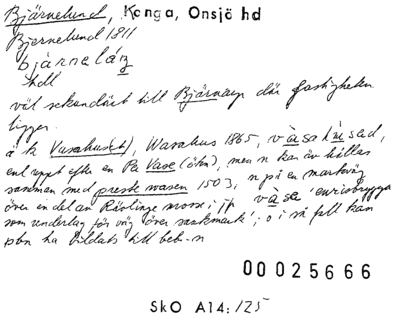 Bjärnelund, Konga, Onsjö hd
Bjernelund 1811
bjárnelán
hdl
väl sekundärt till Bjärnarp där fastigheten
ligger.
å k Vasahus(et), Wasahus 1865, vàsahùsəd,
enl uppt efter en Pa Vase (öhn), men n kan äv hållas
samman med preste wasen 1503, n på en markväg
över en del av Rävlinge mosse; jfr vàsa 'enrisbrygga
som underlag för väg över sankmark'; o i så fall kan
pbn ha bildats till beb-n
00025666
SkO A14:125